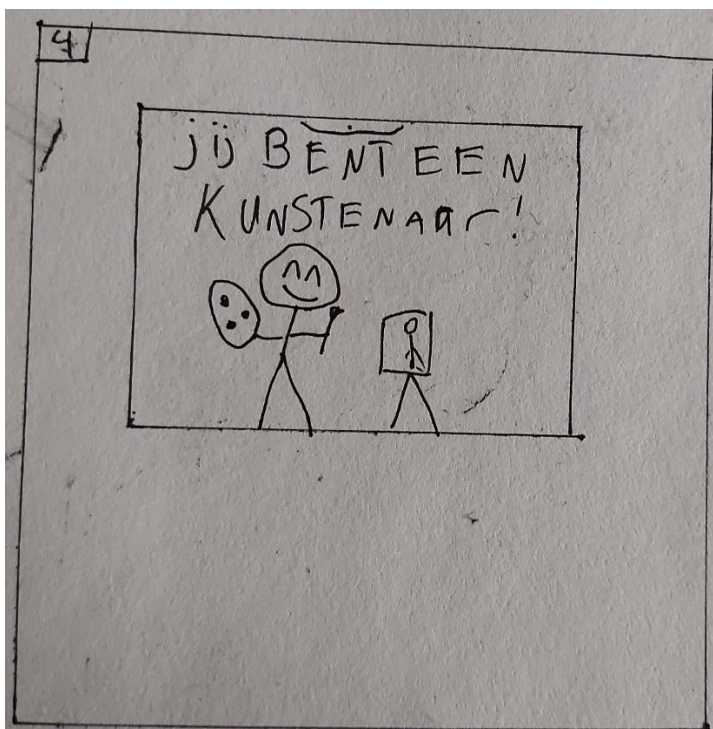 4
jij BENT EEN
KUNSTENAAr!